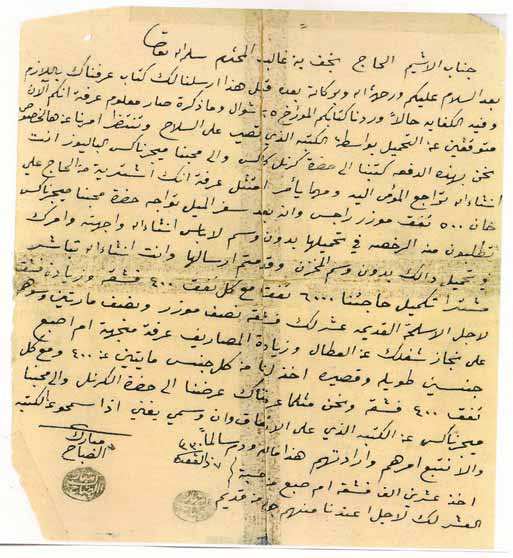 جناب الاشيم الحاج نجف بن غالب المحترم سلمه الله تعالى
بعد السلام عليكم ورحمة الله وبركاته بعده قبل هذا ارسلنا لك كتاب عرفناك باللازم
وفيه الكفايه حالاً وردنا كتابكم المورخ ٢٥ شوال وما ذكرة صار معلوم عرفة انكم الآن
متوقفين عن التحميل بواسطة الكتبه الذي تصب على السلاح وتنتظر امرنا عن هالخصوص
نحن بهذه الدفعه كتبنا الى حضرة كرنل كاكس والى محبنا ميجرناكس الباليوز انت
انشاءالله تواجع المومى اليه ومهما يأمر امتثل عرفة انك اشتريت من الحاج علي
خان ٥٠٠ تفق موزر راجس وانه بعد سفر الميل تواجه حضرة محبنا ميجرناكس
تطلبون منه الرخصه في تحميلها بدون وسم لاباس انشاءالله واجهته وامرك
وتحميل ذالك بدون وسم المخزن وقدمتم ارسالها وانت انشاءالله تباشر
مشترا تكميل حاجتنا ٦٠٠٠ تفقه مع كل تفق ٤٠٠ فشقه وزيادة فشق
لاجل الاسلحه القديمه عشر لك فشقه نصف موزر ونصف مارتين وسوهر
على نجاز شغلك عن العطال وزيادة المصاريف عرفة من جهة ام اصبع
جنسين طويله وقصيره اخذ لنا من كل جنس مايتين عن ٤٠٠ ومع كل
تفق ٤٠٠ فشقه ونحن مثلما عرفناك عرضنا الى حضرة الكرنل والى محبنا
ميجرناكس عن الكتبه الذي على الاتفاق وان وسمي يغني اذا سمحو عن الكتبه
والا نتبع امرهم وارادتهم هذا ماله ودم سالماً
٧ ذي القعدة
مبارك الصباح
اخذ عشرين الف فشقه ام صبع من هيبة
العشر لك لاجل ما عندنا منهم جامه قديم